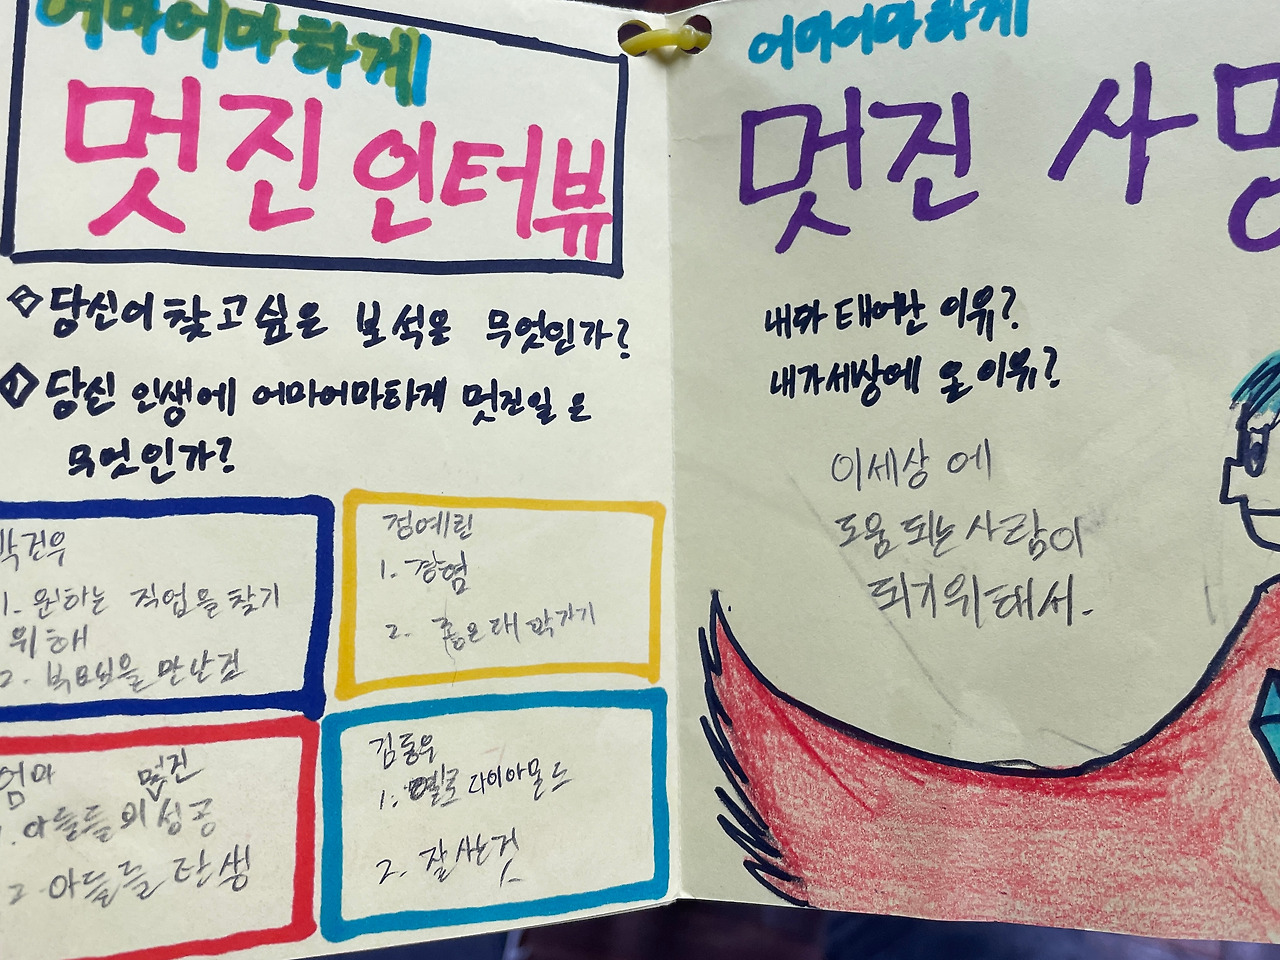 어마어마하게
멋진 인터뷰
당신이 찾고 싶은 보석은 무엇인가?
당신 인생에 어마어마하게 멋진일은
무엇인가?
박건우
1. 원하는 직업을 찾기
위해
2. 부모님을 만난것
정예린
1. 경험
2. 좋은대학가기
엄마
멋진
1. 아들들의 성공
2 아들들 탄생
김동우
1. 옐로 다이아몬드
2. 잘사는것
어마어마하게
멋진 사명
내가 태어난 이유?
내가세상에 온 이유?
이세상에
도움 되는 사람이
되기위해서.